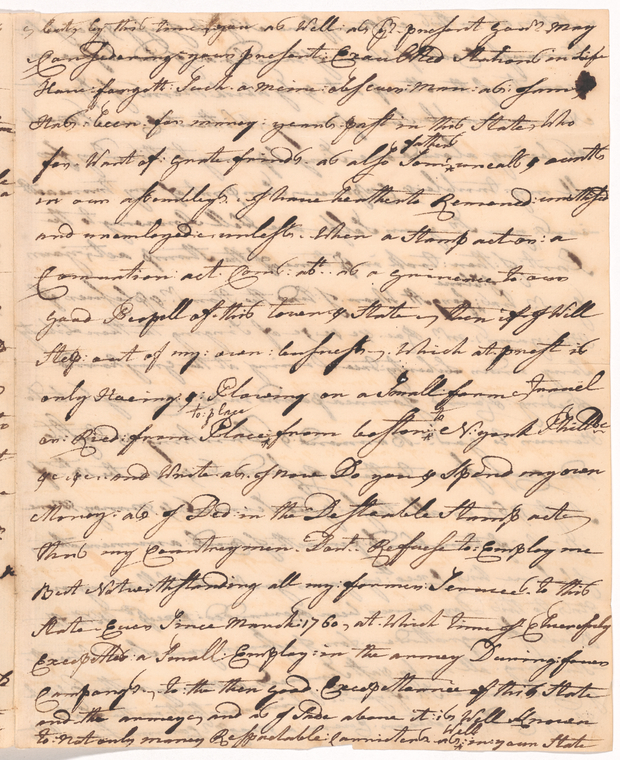 by this time you as Well as ye present may
Considering your present Exaulted Stations in Life
Have forgott Such a meine obscuer man as
Has been for maney years past in this State, Who
for Want of grate frinds as also Som
fathers
in our assemblys I have heatherto Remened
and unemployed unless When a Stamp act or a
Convention act Coms as a grieunce to our
good Peopell of this town & State, then if I Will
Step out of my own business, Which at prest is
only Hoeing & Plowing on a Small farm Travel
to place
or Ried from Place from boston to N: york Philld
&c &c and Write as I now Do you & Spend my own
Money as I Did in the Stamp act
this my Countreymen Dont Refuese to Employ me
But Notwithstanding all my former Services to this
State Ever Since March 1760, at Which time I Cheerfuly
Excepted a Small Employ in the armey During foure
Campangs, to the then good Exceptance of this State
and the armeye, and as I Side above it is Well Known
Well
to not only maney Respactable as in your State